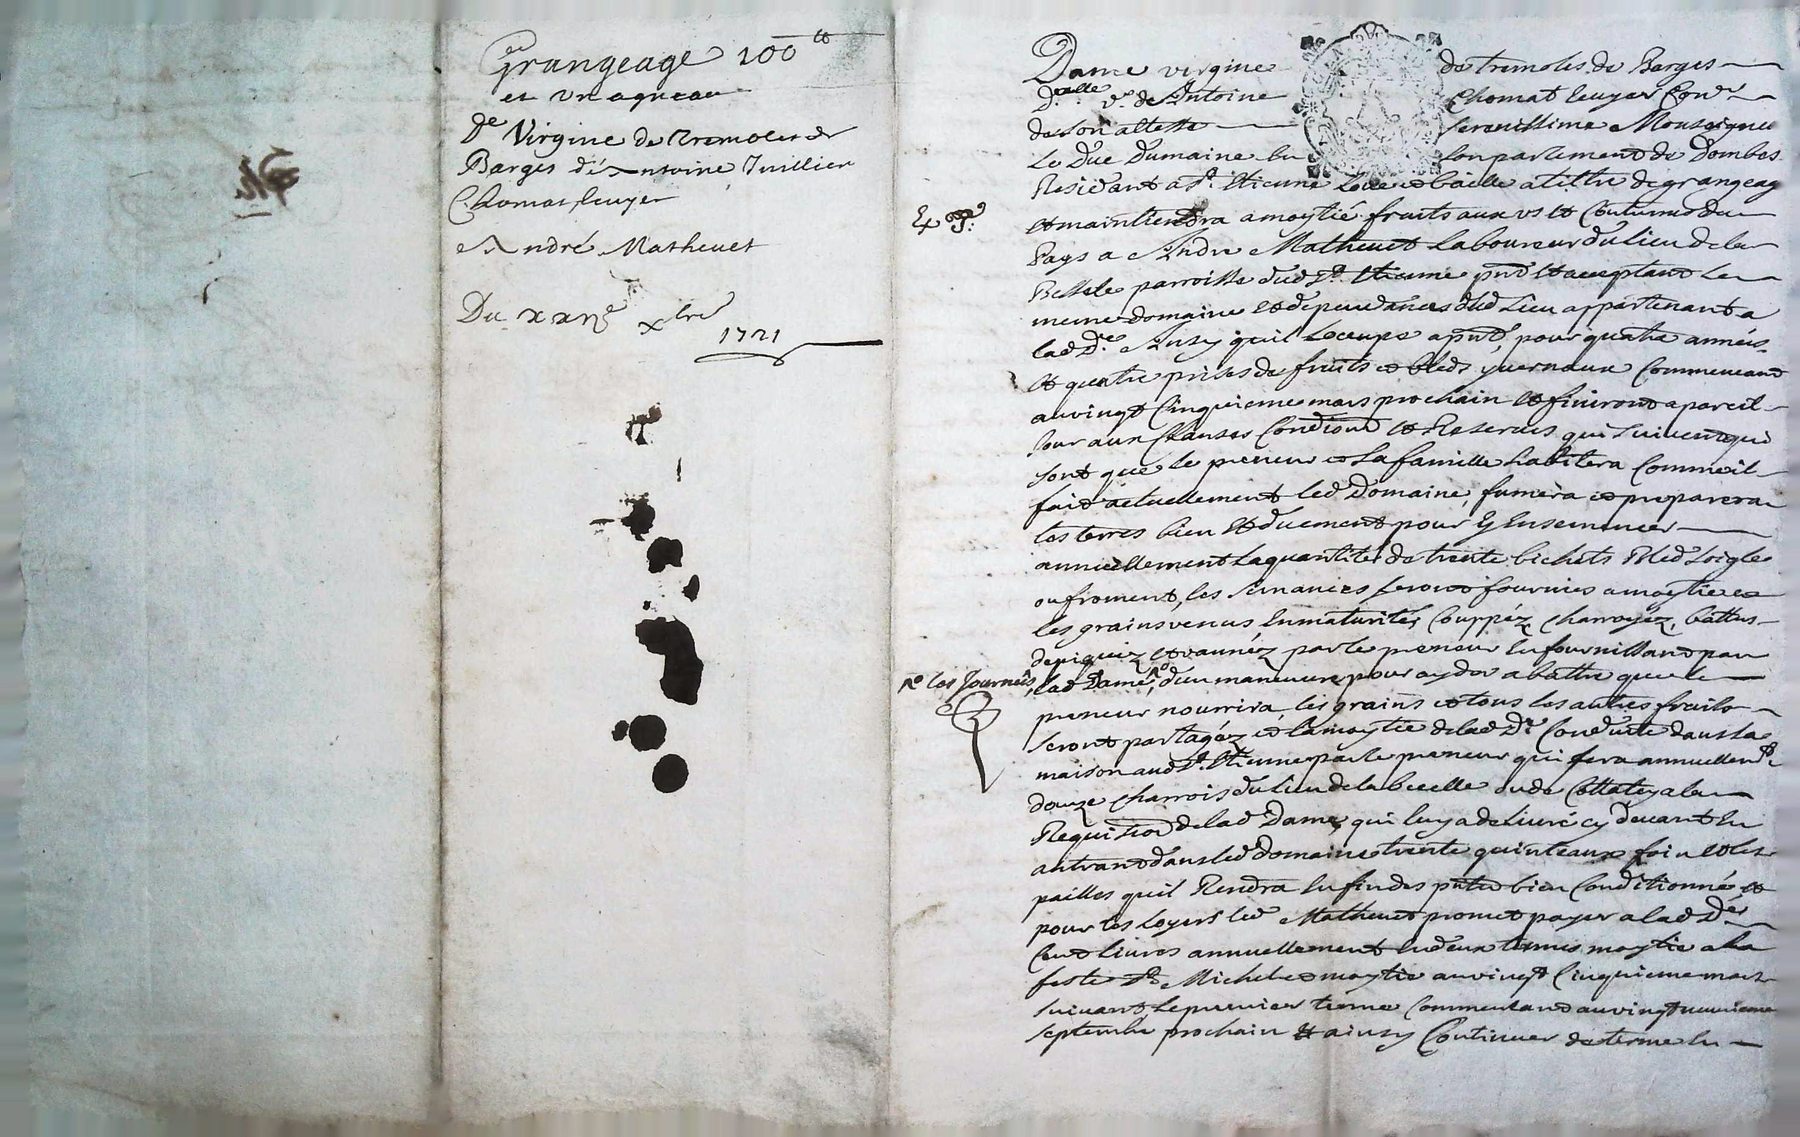 Grangeage 100 tt
et un agneau
De Virgine de Tremoles de
Barges d'e Antoine Juillien
Chomat, Ecuyer
A André Matheuet
Du xxx
xbre
1721
Ex
Dame virgine de tremoles de Barges
ve de Antoine Chomat Ecuyer Conr
de Son altesse Serenissime Monseigneur
Le Duc Dumaine En Son parlement de Dombes
Residant a St Etienne Loue et baille a tiltre de grangeage
et maintiendra a moytié fruits aux us et Coutumes du
Pays a Andre Matheuet Laboureur du Lieu de la
parroisse dud St Etienne pnt et acceptant Le
meme domaine et dependances dud Lieu appartenant a
lad De Ainsy quil Loccupe a pnt, pour quatre années
et quatre prises de fruits et bleds yvernaux Commencant
au vingt Cinquieme mars prochain et finiront a pareil
Jour aux Clauses Condions et Reserves qui suivent qui
sont que le preneur et Sa famille habitera Comme il
fait actuellement led Domaine, fumera et preparera
les terres bien et duement pour y Ensemencer
annuellement La quantité de trente bichets Bled Soigle
ou froment, les Semances Seront fournies a moytié et
les grains venus En maturité, Couppéz, charroyéz, battus
depiquez et vannéz par le preneur En fournissant par
Ro les Journées
lad Dame, Ro d'un maneuvre pour ayder a battre que le
preneur nourrira, les grains et tous les autres fruits
seront partagéz et la moytié de lad De Conduite dans sa
maison aud St Etienne par le preneur qui fera annuellemt
douze charrois du Lieu de la ou de a la
Requisition de lad Dame, qui luy a delivré cy devant En
antrant dans led domaine trente quinteaux foin et les
pailles quil Rendra En fin des pntes bien Conditionné, et
pour les Loyers led Matheuet promet payer a lad De
Cent livres annuellement En deux termes moytié a la
feste St Michel et moytié au vingt Cinquieme mars
suivant Le premier terme Commencant au vingt neuvieme
septembre prochain et ainsy Continuer de terme En